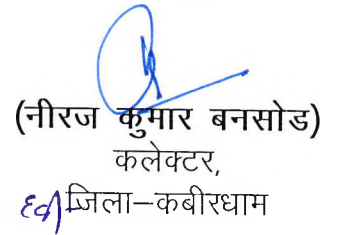 (नीरज कुमार बनसोड)
कलेक्टर,
जिला–कबीरधाम